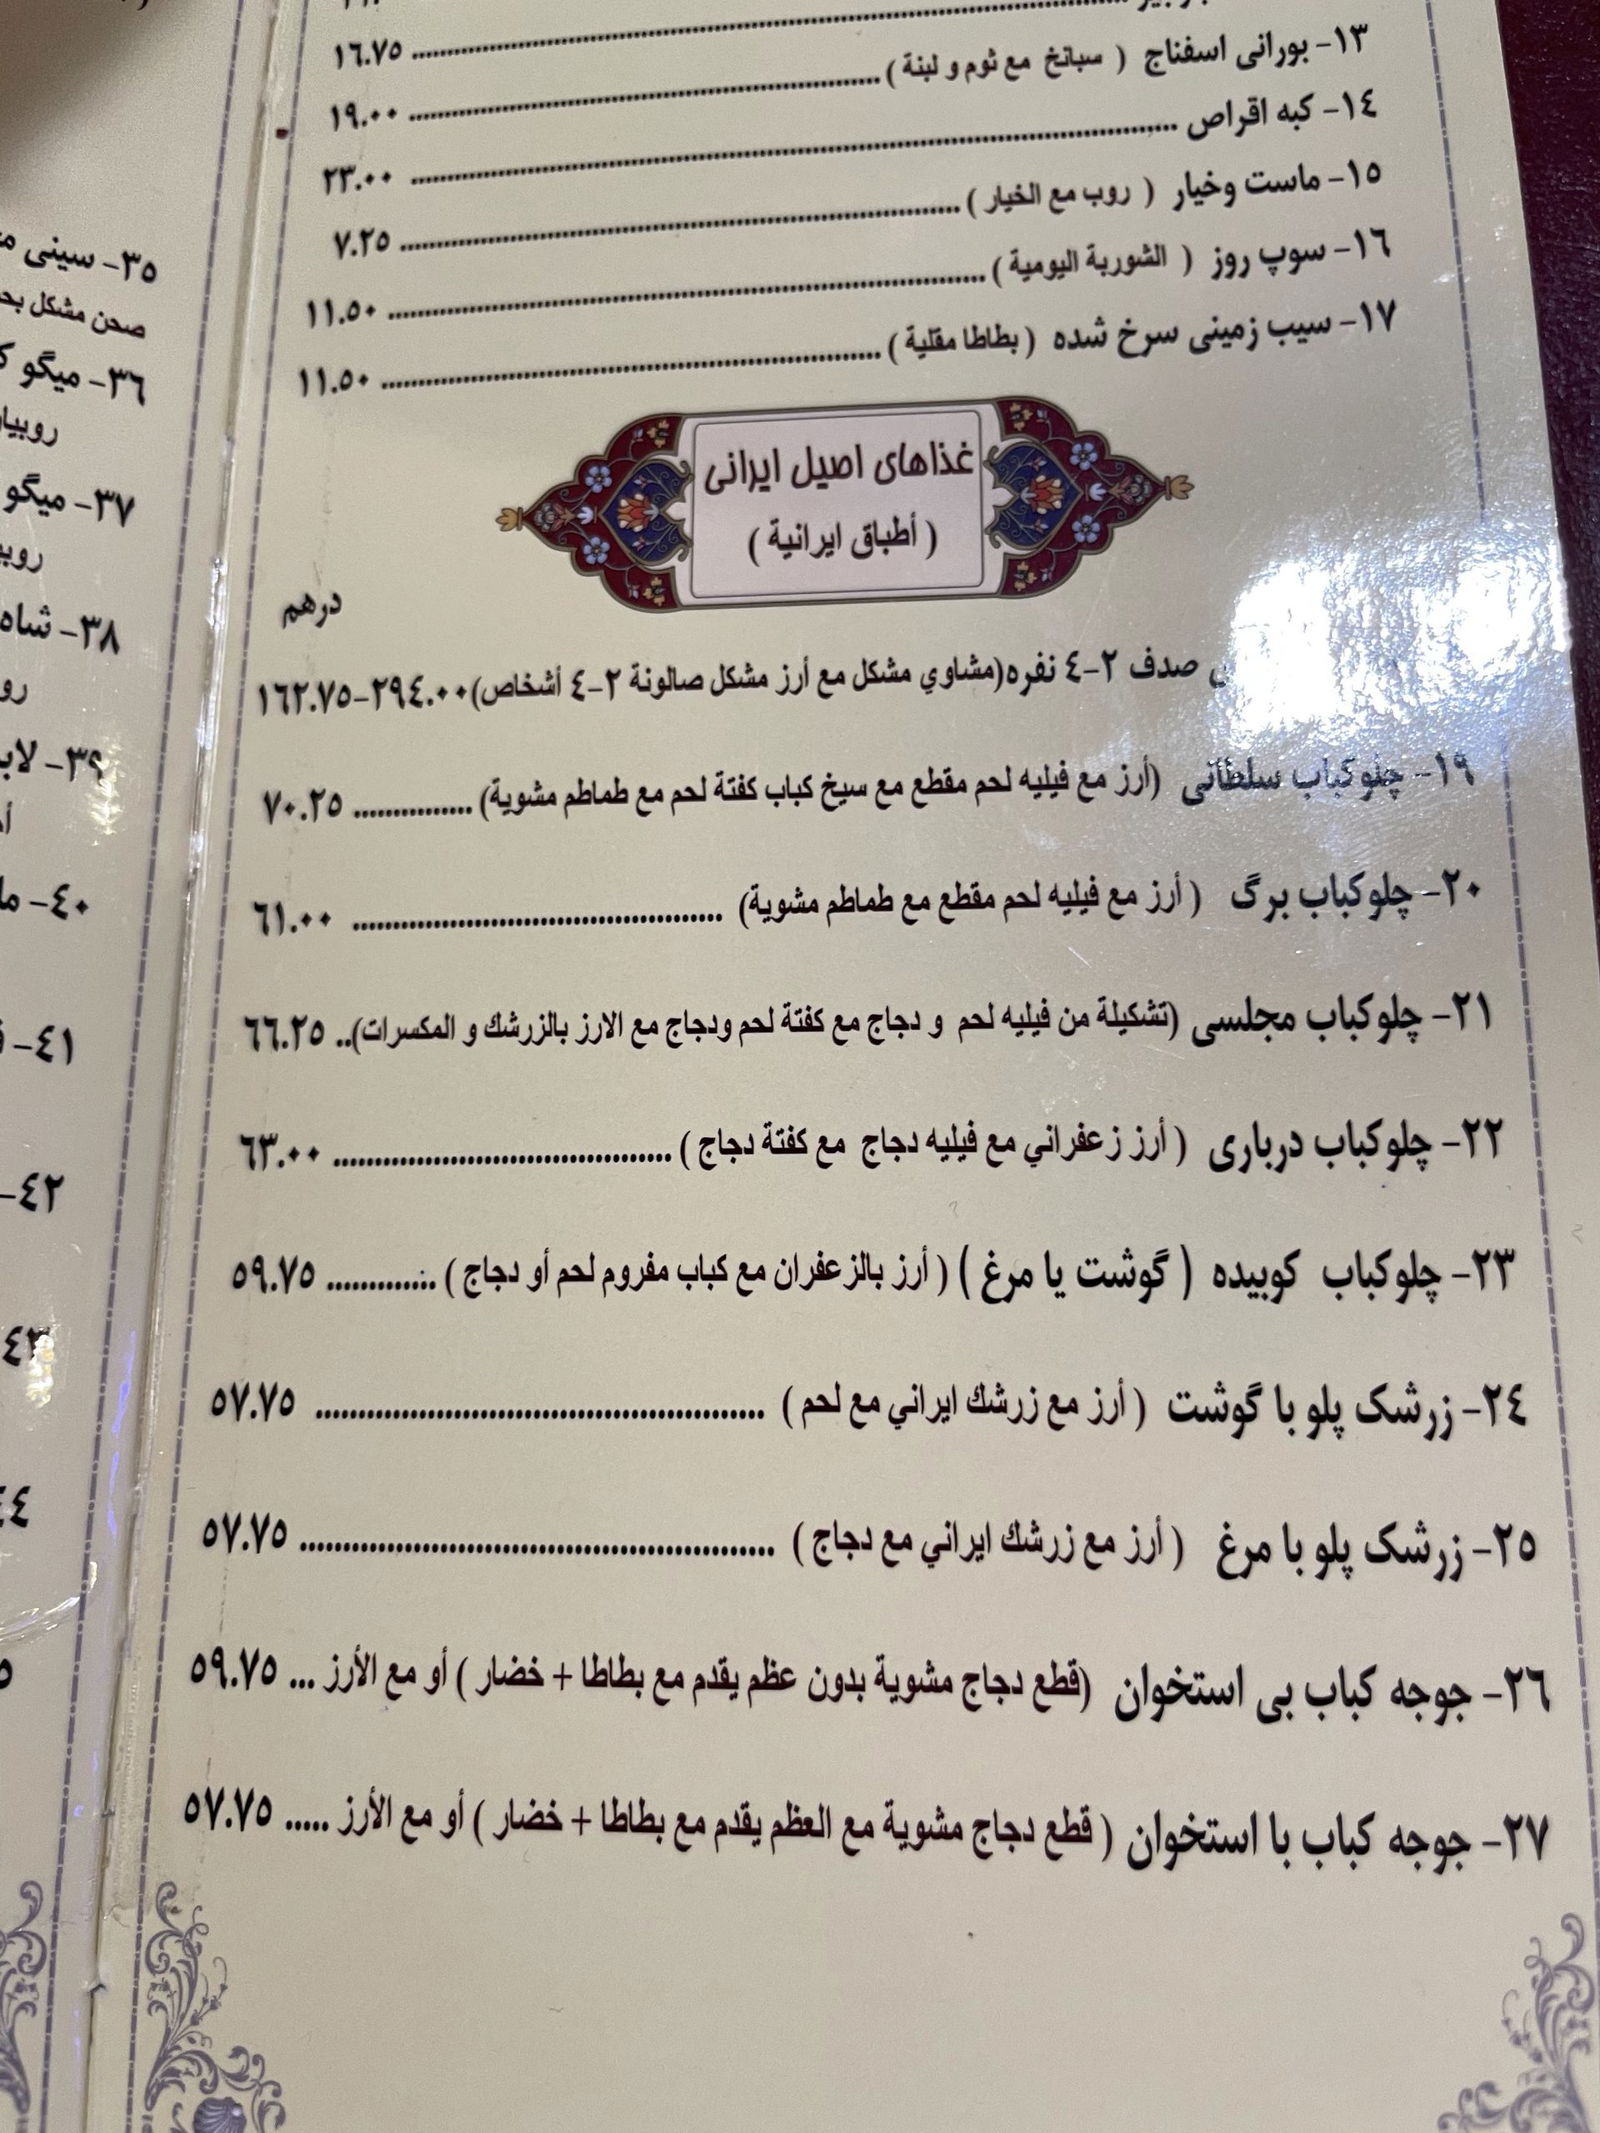 ١٣- بورانی اسفناج ( سبانخ مع ثوم و لبنة ) ١٩.٠٠
١٤- کبه اقراص ٢٣.٠٠
١٥- ماست وخیار ( روب مع الخيار ) ٧.٢٥
١٦- سوپ روز ( الشوربة اليومية ) ١١.٥٠
١٧- سیب زمینی سرخ شده ( بطاطا مقلية ) ١١.٥٠
غذاهای اصیل ایرانی
( أطباق ايرانية )
درهم
صدف ٢-٤ نفره (مشاوي مشكل مع أرز مشكل صالونة ٢-٤ أشخاص) ٢٩٤.٠٠-١٦٢.٧٥
١٩- چلوکباب سلطانی (أرز مع فيليه لحم مقطع مع سيخ كباب كفتة لحم مع طماطم مشوية) ............... ٧٠.٢٥
٢٠- چلوکباب برگ ( أرز مع فيليه لحم مقطع مع طماطم مشوية) ............... ٦١.٠٠
٢١- چلوکباب مجلسی (تشكيلة من فيليه لحم و دجاج مع كفتة لحم ودجاج مع الارز بالزرشك و المكسرات).. ٦٦.٢٥
٢٢- چلوکباب درباری ( أرز زعفراني مع فيليه دجاج مع كفتة دجاج ) ............... ٦٣.٠٠
٢٣- چلوکباب کوبیده ( گوشت یا مرغ ) ( أرز بالزعفران مع كباب مفروم لحم أو دجاج ) ............. ٥٩.٧٥
٢٤- زرشک پلو با گوشت ( أرز مع زرشك ايراني مع لحم ) ............... ٥٧.٧٥
٢٥- زرشک پلو با مرغ ( أرز مع زرشك ايراني مع دجاج ) ............... ٥٧.٧٥
٢٦- جوجه کباب بی استخوان (قطع دجاج مشوية بدون عظم يقدم مع بطاطا + خضار ) أو مع الأرز ... ٥٩.٧٥
٢٧- جوجه کباب با استخوان ( قطع دجاج مشوية مع العظم يقدم مع بطاطا + خضار ) أو مع الأرز ..... ٥٧.٧٥
١٦.٧٥
٣٥- سینی
صحن مشكل
٣٦- میگو
٣٧- میگو
٣٨- شاه
٣٩-
٤٠-
٤١-
٤٢-